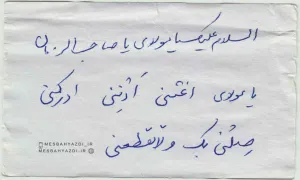 السلام علیک یا مولای یا صاحب الزمان
یا مولای اغثنی اَدْنِنی ادرکنی
صِلْنی بک و لا تقطعنی
MESBAHYAZDI_IR
MESBAHYAZDI_IR